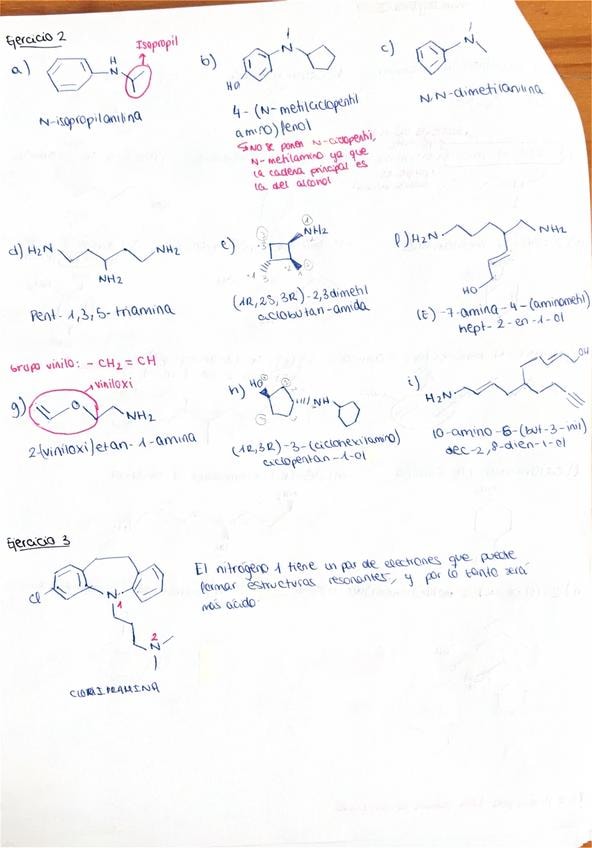 Ejercicio 2
Isopropil
a)
H
N
N-isopropilanilina
b)
N
HO
4-(N-metilciclopentil
amino)fenol
No se ponen N-ciclopentil,
N-metilamino ya que
la cadena principal es
la del alcohol
c)
N
N,N-dimetilanilina
d) H₂N
NH₂
NH₂
Pent-1,3,5-triamina
e)
1
NH₂
(1R,2S,3R)-2,3dimetil
ciclobutan-amida
f) H₂N
NH₂
HO
(E)-7-amina-4-(aminometil)
hept-2-en-1-ol
Grupo vinilo: -CH₂=CH
viniloxi
g)
O
NH₂
2-(viniloxi)etan-1-amina
h) HO
NH
(1R,3R)-3-(ciclohexilamino)
ciclopentan-1-ol
i)
OH
H₂N
10-amino-6-(but-3-inil)
dec-2,8-dien-1-ol
Ejercicio 3
Cl
N
1
2
N
CLORIPRAMINA
El nitrógeno 1 tiene un par de electrones que puede
formar estructuras resonantes, y por lo tanto será
más ácido.